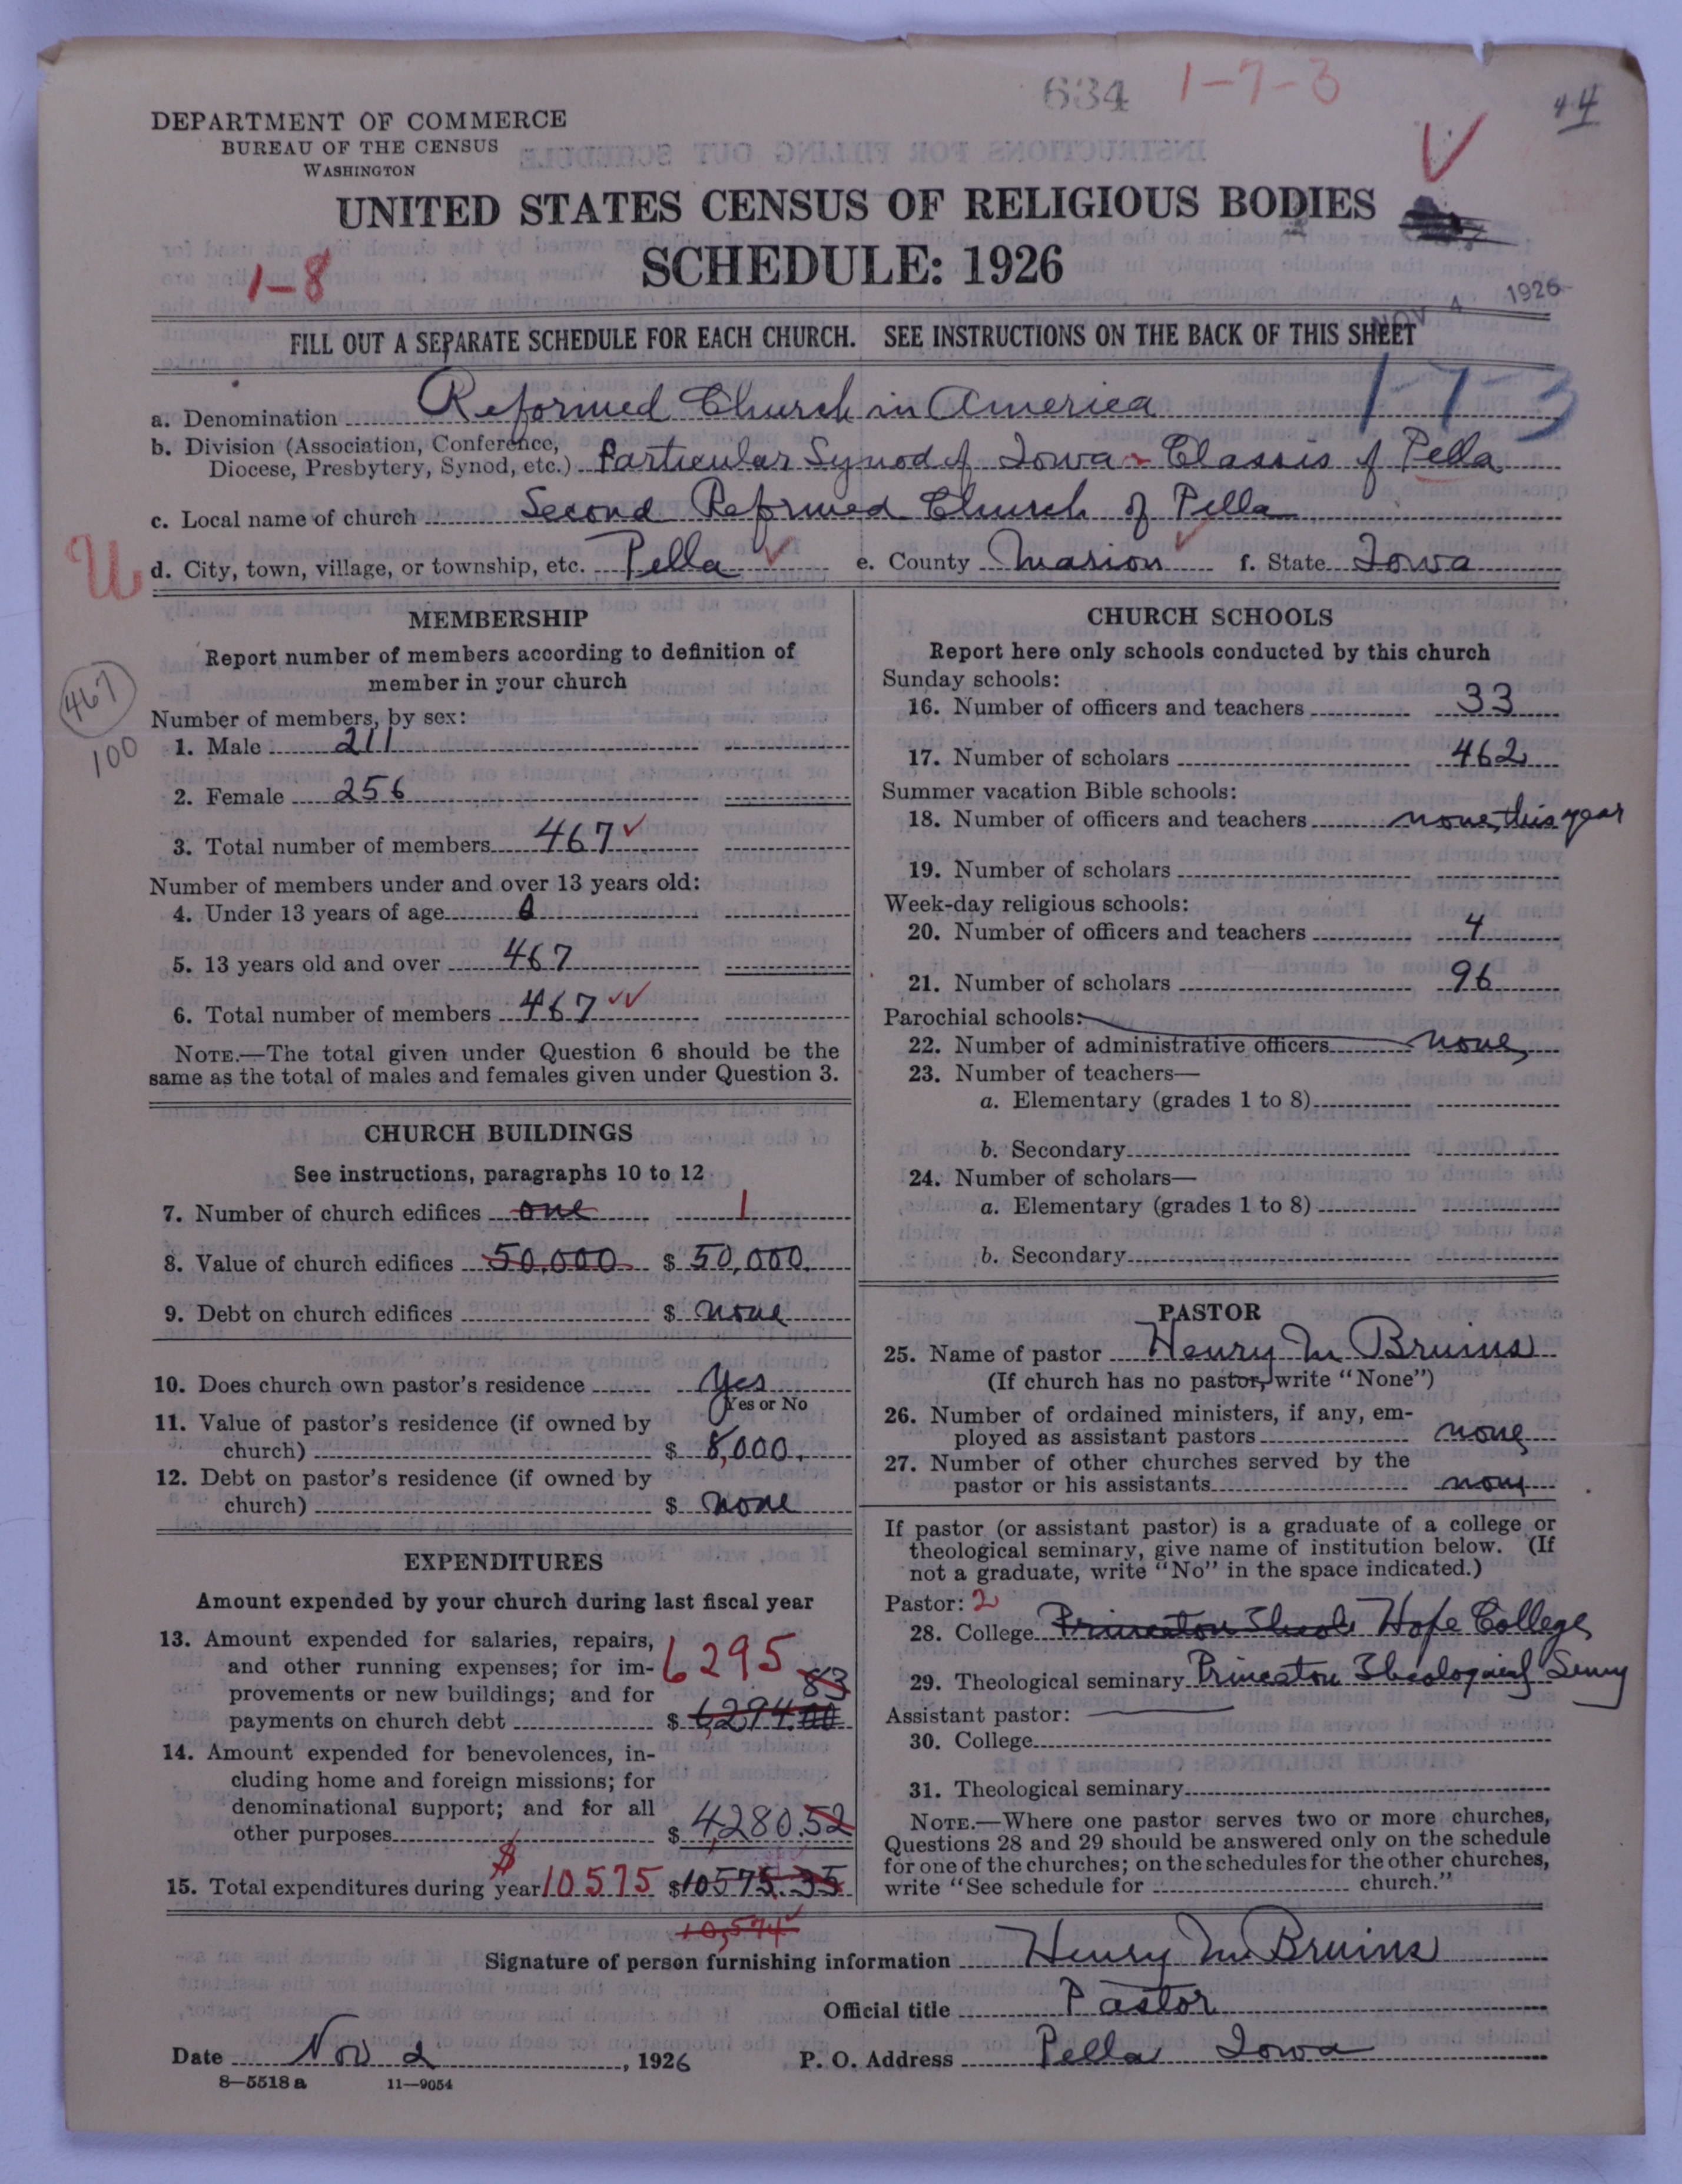 634 1-7-3 44
DEPARTMENT OF COMMERCE
BUREAU OF THE CENSUS
WASHINGTON
UNITED STATES CENSUS OF RELIGIOUS BODIES
SCHEDULE: 1926
1-8
NOV 4 1926
FILL OUT A SEPARATE SCHEDULE FOR EACH CHURCH. SEE INSTRUCTIONS ON THE BACK OF THIS SHEET
1-7-3
a. Denomination Reformed Church in America
b. Division (Association, Conference,
Diocese, Presbytery, Synod, etc.) Particular Synod of Iowa - Classis of Pella
c. Local name of church Second Reformed Church of Pella
U
d. City, town, village, or township, etc. Pella e. County Marion f. State Iowa
MEMBERSHIP
Report number of members according to definition of
member in your church
467
100
Number of members, by sex:
1. Male 211
2. Female 256
3. Total number of members 467
Number of members under and over 13 years old:
4. Under 13 years of age 0
5. 13 years old and over 467
6. Total number of members 467
NOTE.—The total given under Question 6 should be the
same as the total of males and females given under Question 3.
CHURCH BUILDINGS
See instructions, paragraphs 10 to 12
7. Number of church edifices one 1
8. Value of church edifices 50,000 $ 50,000.
9. Debt on church edifices $ none
10. Does church own pastor's residence Yes
Yes or No
11. Value of pastor's residence (if owned by
church) $ 8,000.
12. Debt on pastor's residence (if owned by
church) $ none
EXPENDITURES
Amount expended by your church during last fiscal year
13. Amount expended for salaries, repairs,
and other running expenses; for im-
provements or new buildings; and for
payments on church debt $ 6,294.00
6295 83
14. Amount expended for benevolences, in-
cluding home and foreign missions; for
denominational support; and for all
other purposes $ 4,280.52
15. Total expenditures during year $ 10575 $10575.35
10,574
CHURCH SCHOOLS
Report here only schools conducted by this church
Sunday schools:
16. Number of officers and teachers 33
17. Number of scholars 462
Summer vacation Bible schools:
18. Number of officers and teachers none this year
19. Number of scholars
Week-day religious schools:
20. Number of officers and teachers 4
21. Number of scholars 96
Parochial schools:
22. Number of administrative officers none
23. Number of teachers—
a. Elementary (grades 1 to 8)
b. Secondary
24. Number of scholars—
a. Elementary (grades 1 to 8)
b. Secondary
PASTOR
25. Name of pastor Henry M Bruins
(If church has no pastor, write "None")
26. Number of ordained ministers, if any, em-
ployed as assistant pastors none
27. Number of other churches served by the
pastor or his assistants none
If pastor (or assistant pastor) is a graduate of a college or
theological seminary, give name of institution below. (If
not a graduate, write "No" in the space indicated.)
Pastor: 2
28. College Princeton Theol. Hope College
29. Theological seminary Princeton Theological Semy
Assistant pastor:
30. College
31. Theological seminary
NOTE.—Where one pastor serves two or more churches,
Questions 28 and 29 should be answered only on the schedule
for one of the churches; on the schedules for the other churches,
write "See schedule for church."
Signature of person furnishing information Henry M Bruins
Official title Pastor
Date Nov 2, 1926 P. O. Address Pella Iowa
8—5518 a 11—9054